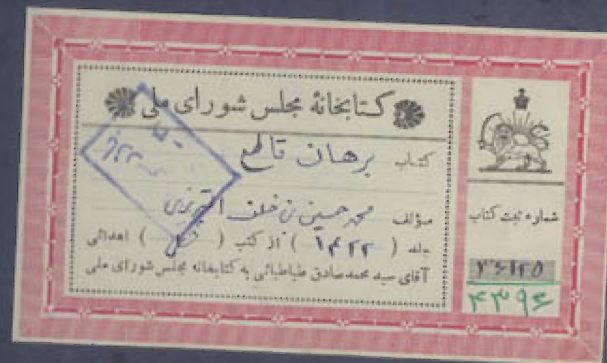 کتابخانهٔ مجلس شورای ملی
کتاب برهان قاطع
مؤلف محمد حسین بن خلف التبریزی
جلد (۱۴۲۲) از کتب (خطی) اهدائی
آقای سید محمد صادق طباطبائی به کتابخانه مجلس شورای ملی
شماره ثبت کتاب
۳۶۱۲۵
۴۳۹۶